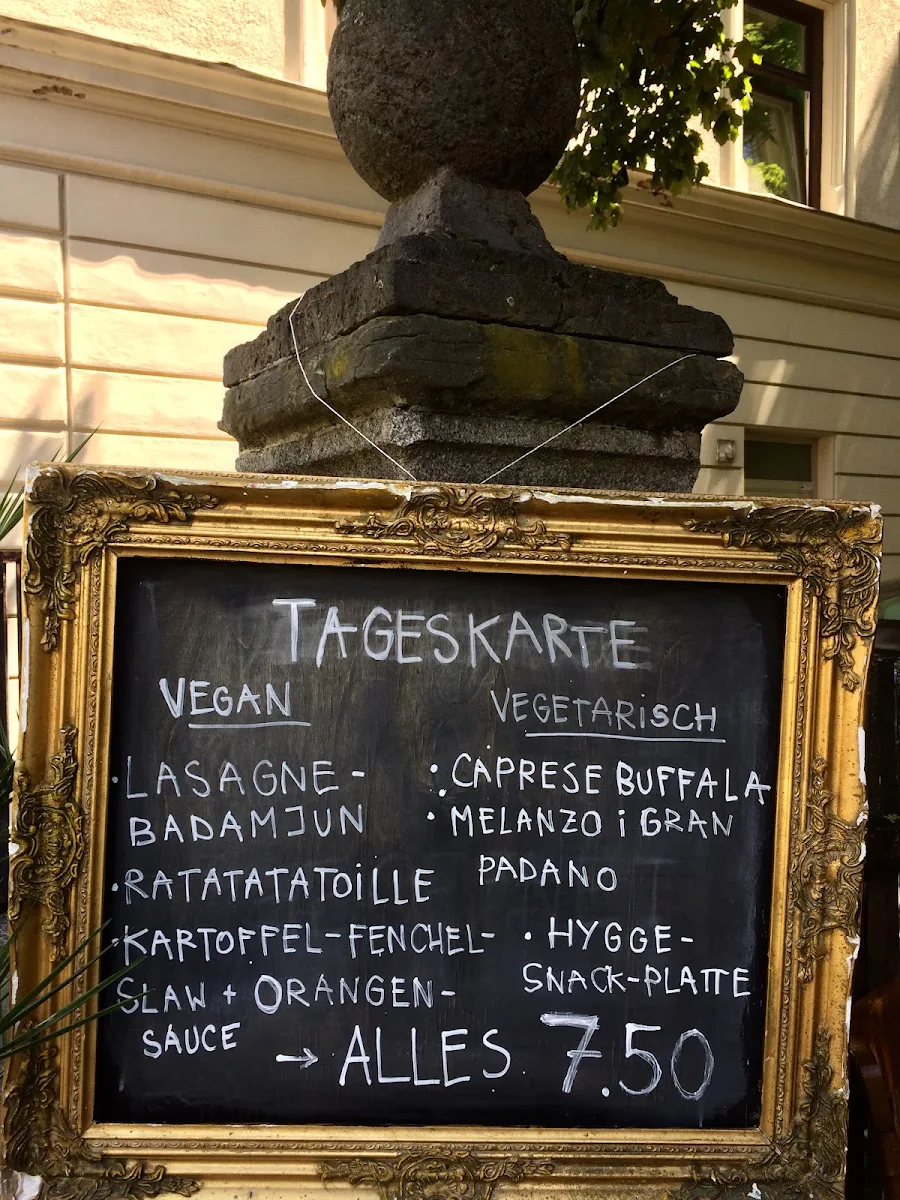 TAGESKARTE
VEGAN
· LASAGNE-
BADAMJUN
· RATATATATOiLLE
· KARTOFFEL-FENCHEL-
SLAW + ORANGEN-
SAUCE
VEGETARiSCH
· CAPRESE BUFFALA
· MELANZO i GRAN
PADANO
· HYGGE-
SNACK-PLATTE
→ ALLES 7.50